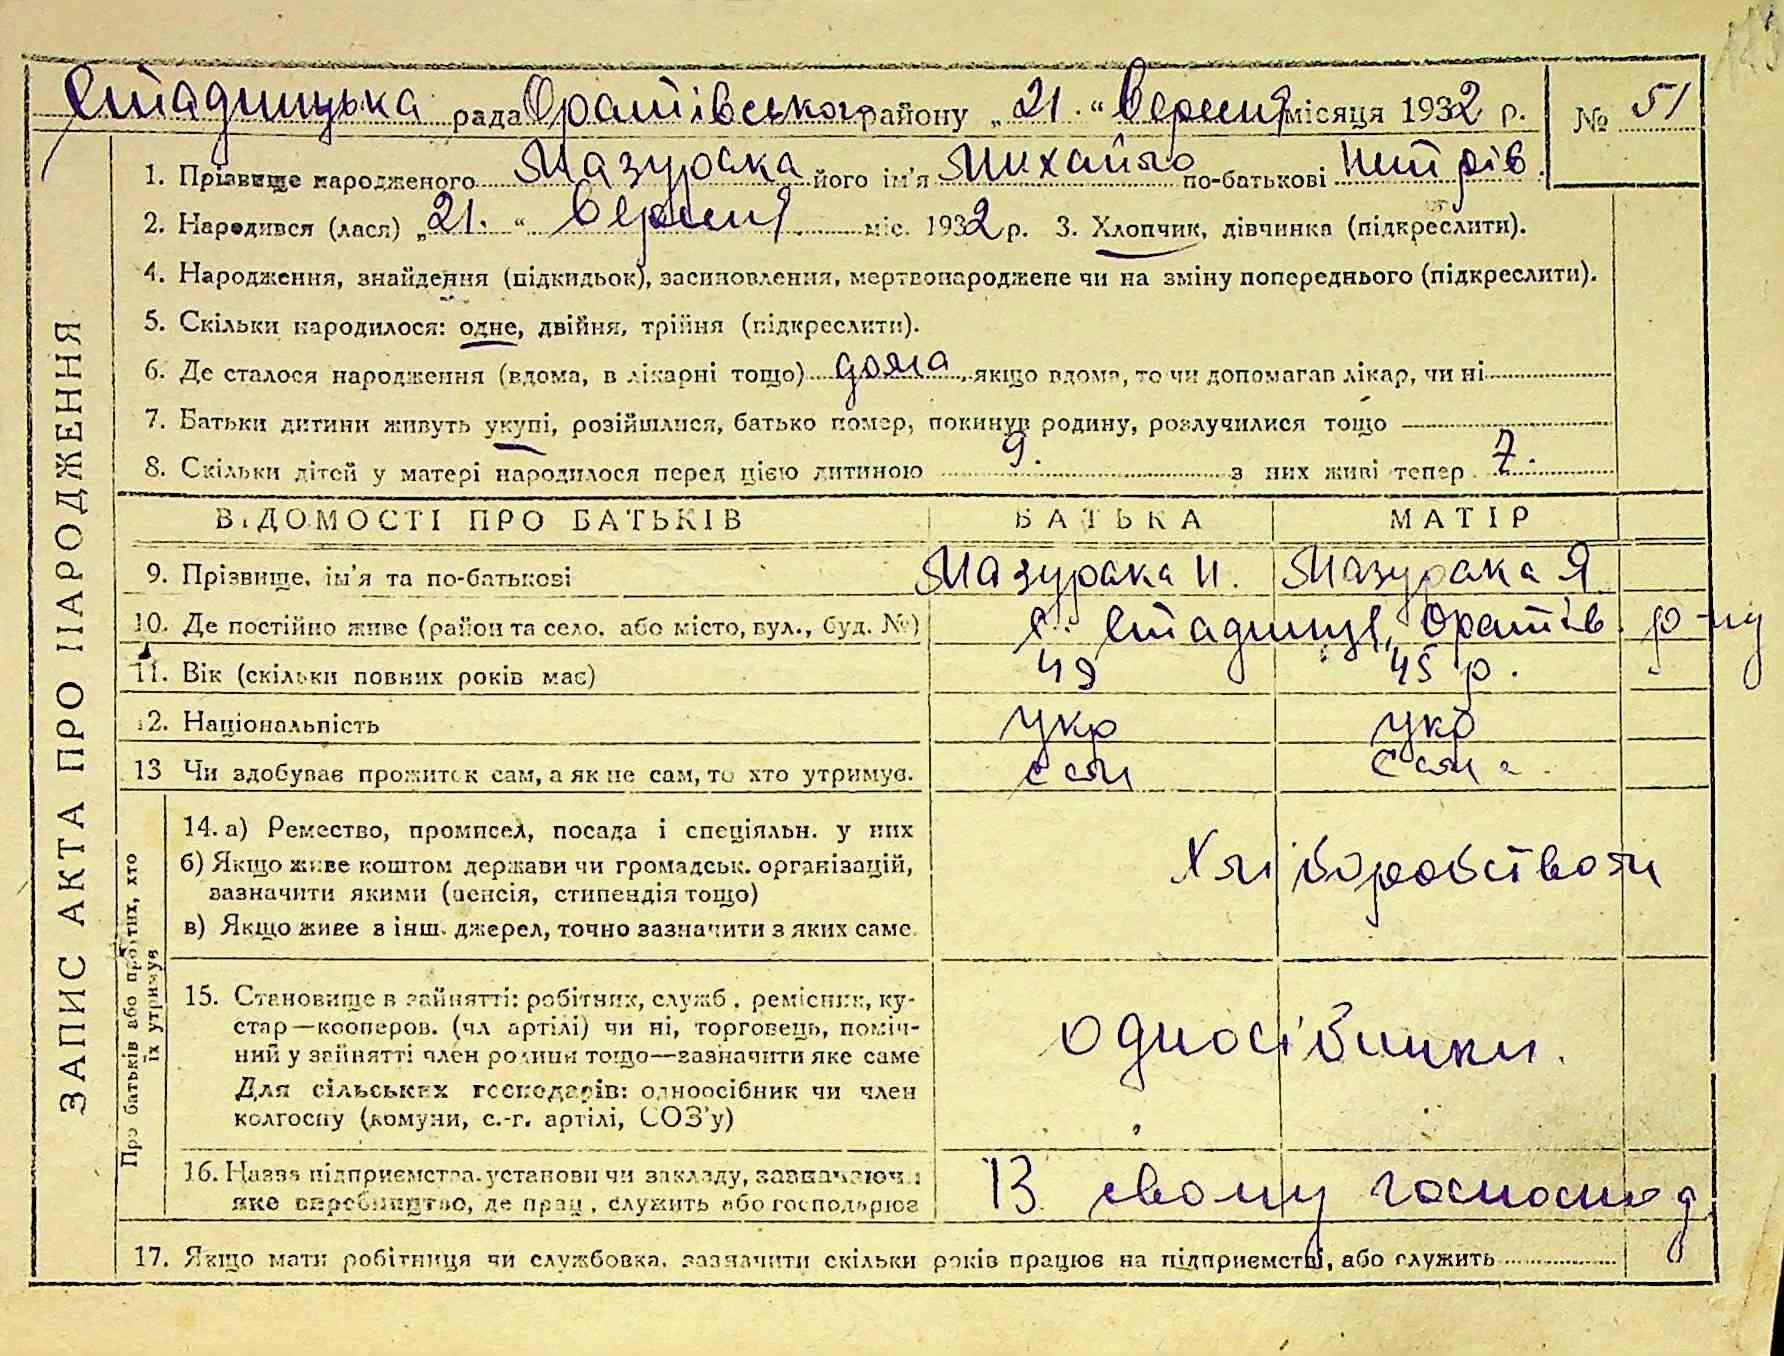 Стадницька рада Оратівського району „21." Вересня місяця 1932 р. № 51
1. Прізвище народженого Мазурака його ім'я Михайло по-батькові Петрів
2. Народився (лася) „21." Вересня міс. 1932 р. 3. Хлопчик, дівчинка (підкреслити).
4. Народження, знайдення (підкидьок), засиновлення, мертвонароджене чи на зміну попереднього (підкреслити).
5. Скільки народилося: одне, двійня, трійня (підкреслити).
6. Де сталося народження (вдома, в лікарні тощо) дома, якщо вдома, то чи допомагав лікар, чи ні
7. Батьки дитини живуть укупі, розійшлися, батько помер, покинув родину, розлучилися тощо
8. Скільки дітей у матері народилося перед цією дитиною 9. з них живі тепер 7.
ЗАПИС АКТА ПРО НАРОДЖЕННЯ
ВІДОМОСТІ ПРО БАТЬКІВ БАТЬКА МАТІР
9. Прізвище, ім'я та по-батькові Мазурака П. Мазурака Я
10. Де постійно живе (район та село, або місто, вул., буд. №) с. Стадниця, Оратів р-ну
11. Вік (скільки повних років має) 49 45 р.
12. Національність укр укр
13 Чи здобуває прожиток сам, а як не сам, то хто утримує. сам сама
Про батьків або про тих, хто їх утримує
14. а) Ремество, промисел, посада і спеціяльн. у них
б) Якщо живе коштом держави чи громадськ. організацій,
зазначити якими (пенсія, стипендія тощо)
Хліборобством
в) Якщо живе з інш. джерел, точно зазначити з яких саме
15. Становище в зайнятті: робітник, служб., ремісник, ку-
стар—кооперов. (чл артілі) чи ні, торговець, поміч-
ний у зайнятті член родини тощо—зазначити яке саме
одноосібники.
Для сільських господарів: одноосібник чи член
колгоспу (комуни, с.-г. артілі, СОЗ'у)
16. Назва підприємства, установи чи закладу, зазначаючи
яке виробництво, де прац., служить або господарює
В свому господ
17. Якщо мати робітниця чи службовка, зазначити скільки років працює на підприємстві, або служить